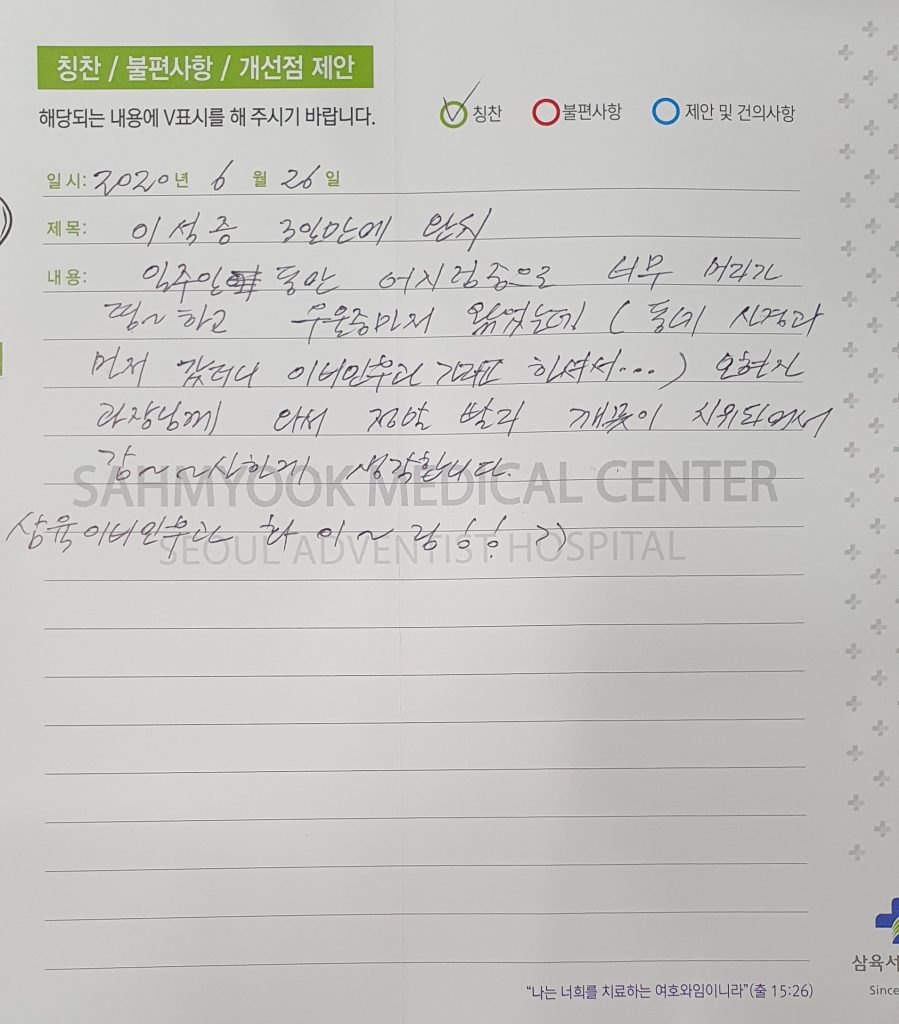 칭찬 / 불편사항 / 개선점 제안
해당되는 내용에 V표시를 해 주시기 바랍니다.
칭찬 불편사항 제안 및 건의사항
일시: 2020년 6월 26일
제목: 이석증 3일만에 완치
내용: 일주일 동안 어지럼증으로 너무 머리가
띵~하고 우울증마저 왔었는데 (동네 신경과
먼저 갔더니 이비인후과 가래요 하셔서...) 오현진
과장님께 와서 정말 빨리 깨끗이 치유되어서
감~~사하게 생각합니다.
SAHMYOOK MEDICAL CENTER
삼육이비인후과 화이~링!!
SEOUL ADVENTIST HOSPITAL
"나는 너희를 치료하는 여호와임이니라"(출 15:26)
삼육서
Since